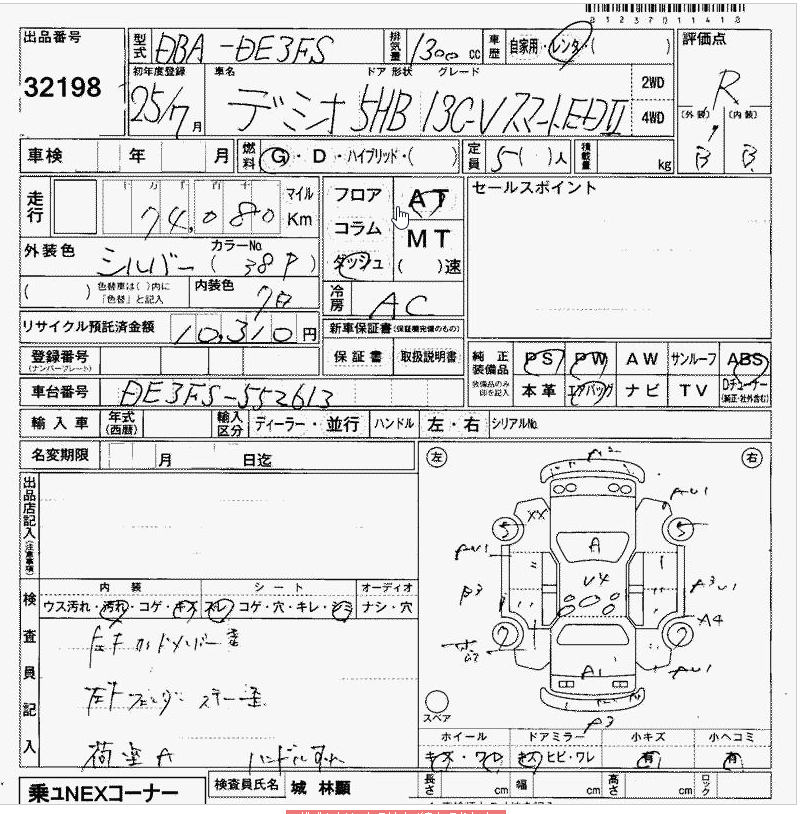 81237011418
出品番号
32198
型式 DBA-DE3FS
排気量 1300 cc
車歴 自家用・レンタ・( )
評価点 R
(外装) B (内装) B
初年度登録 25/7月
車名 ドア 形状 グレード
デミオ 5HB 13C-V スマートED II
2WD
4WD
車検 年 月
燃料 G・D・ハイブリッド・( )
定員 5( )人
積載量 kg
走行 十 万 千 百 十
74,080
マイル
Km
フロア
コラム
ダッシュ
AT
MT
( )速
セールスポイント
外装色 シルバー
カラーNo. ( 38P )
( ) 色替車は( )内に「色替」と記入
内装色
冷房 AC
リサイクル預託済金額 10,310 円
新車保証書(保証欄完備のもの)
保証書 取扱説明書
登録番号
(ナンバープレート)
純正装備品
装備品のみ印を記入
PS PW AW サンルーフ ABS
本革 エアバッグ ナビ TV Dチューナー
(純正・社外含む)
車台番号 DE3FS-552613
輸入車 年式(西暦) 輸入区分 ディーラー・並行 ハンドル 左・右 シリアルNo.
名変期限 月 日迄
出品店記入(注意事項)
左 右
A2
AU1
XX
5 5
AU1
A
U4
B3
A3U1
A4
AU1
A1
スペア
検査員記入
内装 シート オーディオ
ウス汚れ・汚れ・コゲ・キズ スレ・コゲ・穴・キレ・シミ ナシ・穴
左F
左Fフェンダーステー歪
A
ハンドルすれ
ホイール ドアミラー 小キズ 小ヘコミ
キズ・ワレ キズ・ヒビ・ワレ 有 有
乗ュNEXコーナー
検査員氏名 城 林顯
長さ cm 幅 cm 高さ cm ロック